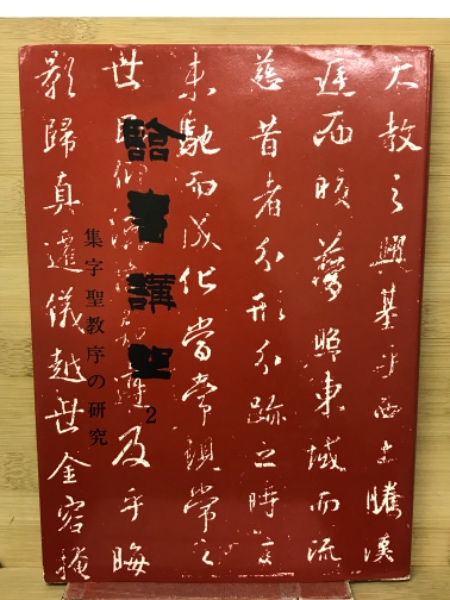 大教之興基乎西土騰漢
庭而皎夢照東域而流
慈昔者分形分跡之時言
未馳而成化當常現常之
世民仰遵及乎晦
影歸真遷儀越世金容掩
臨書講座 2
集字聖教序の研究